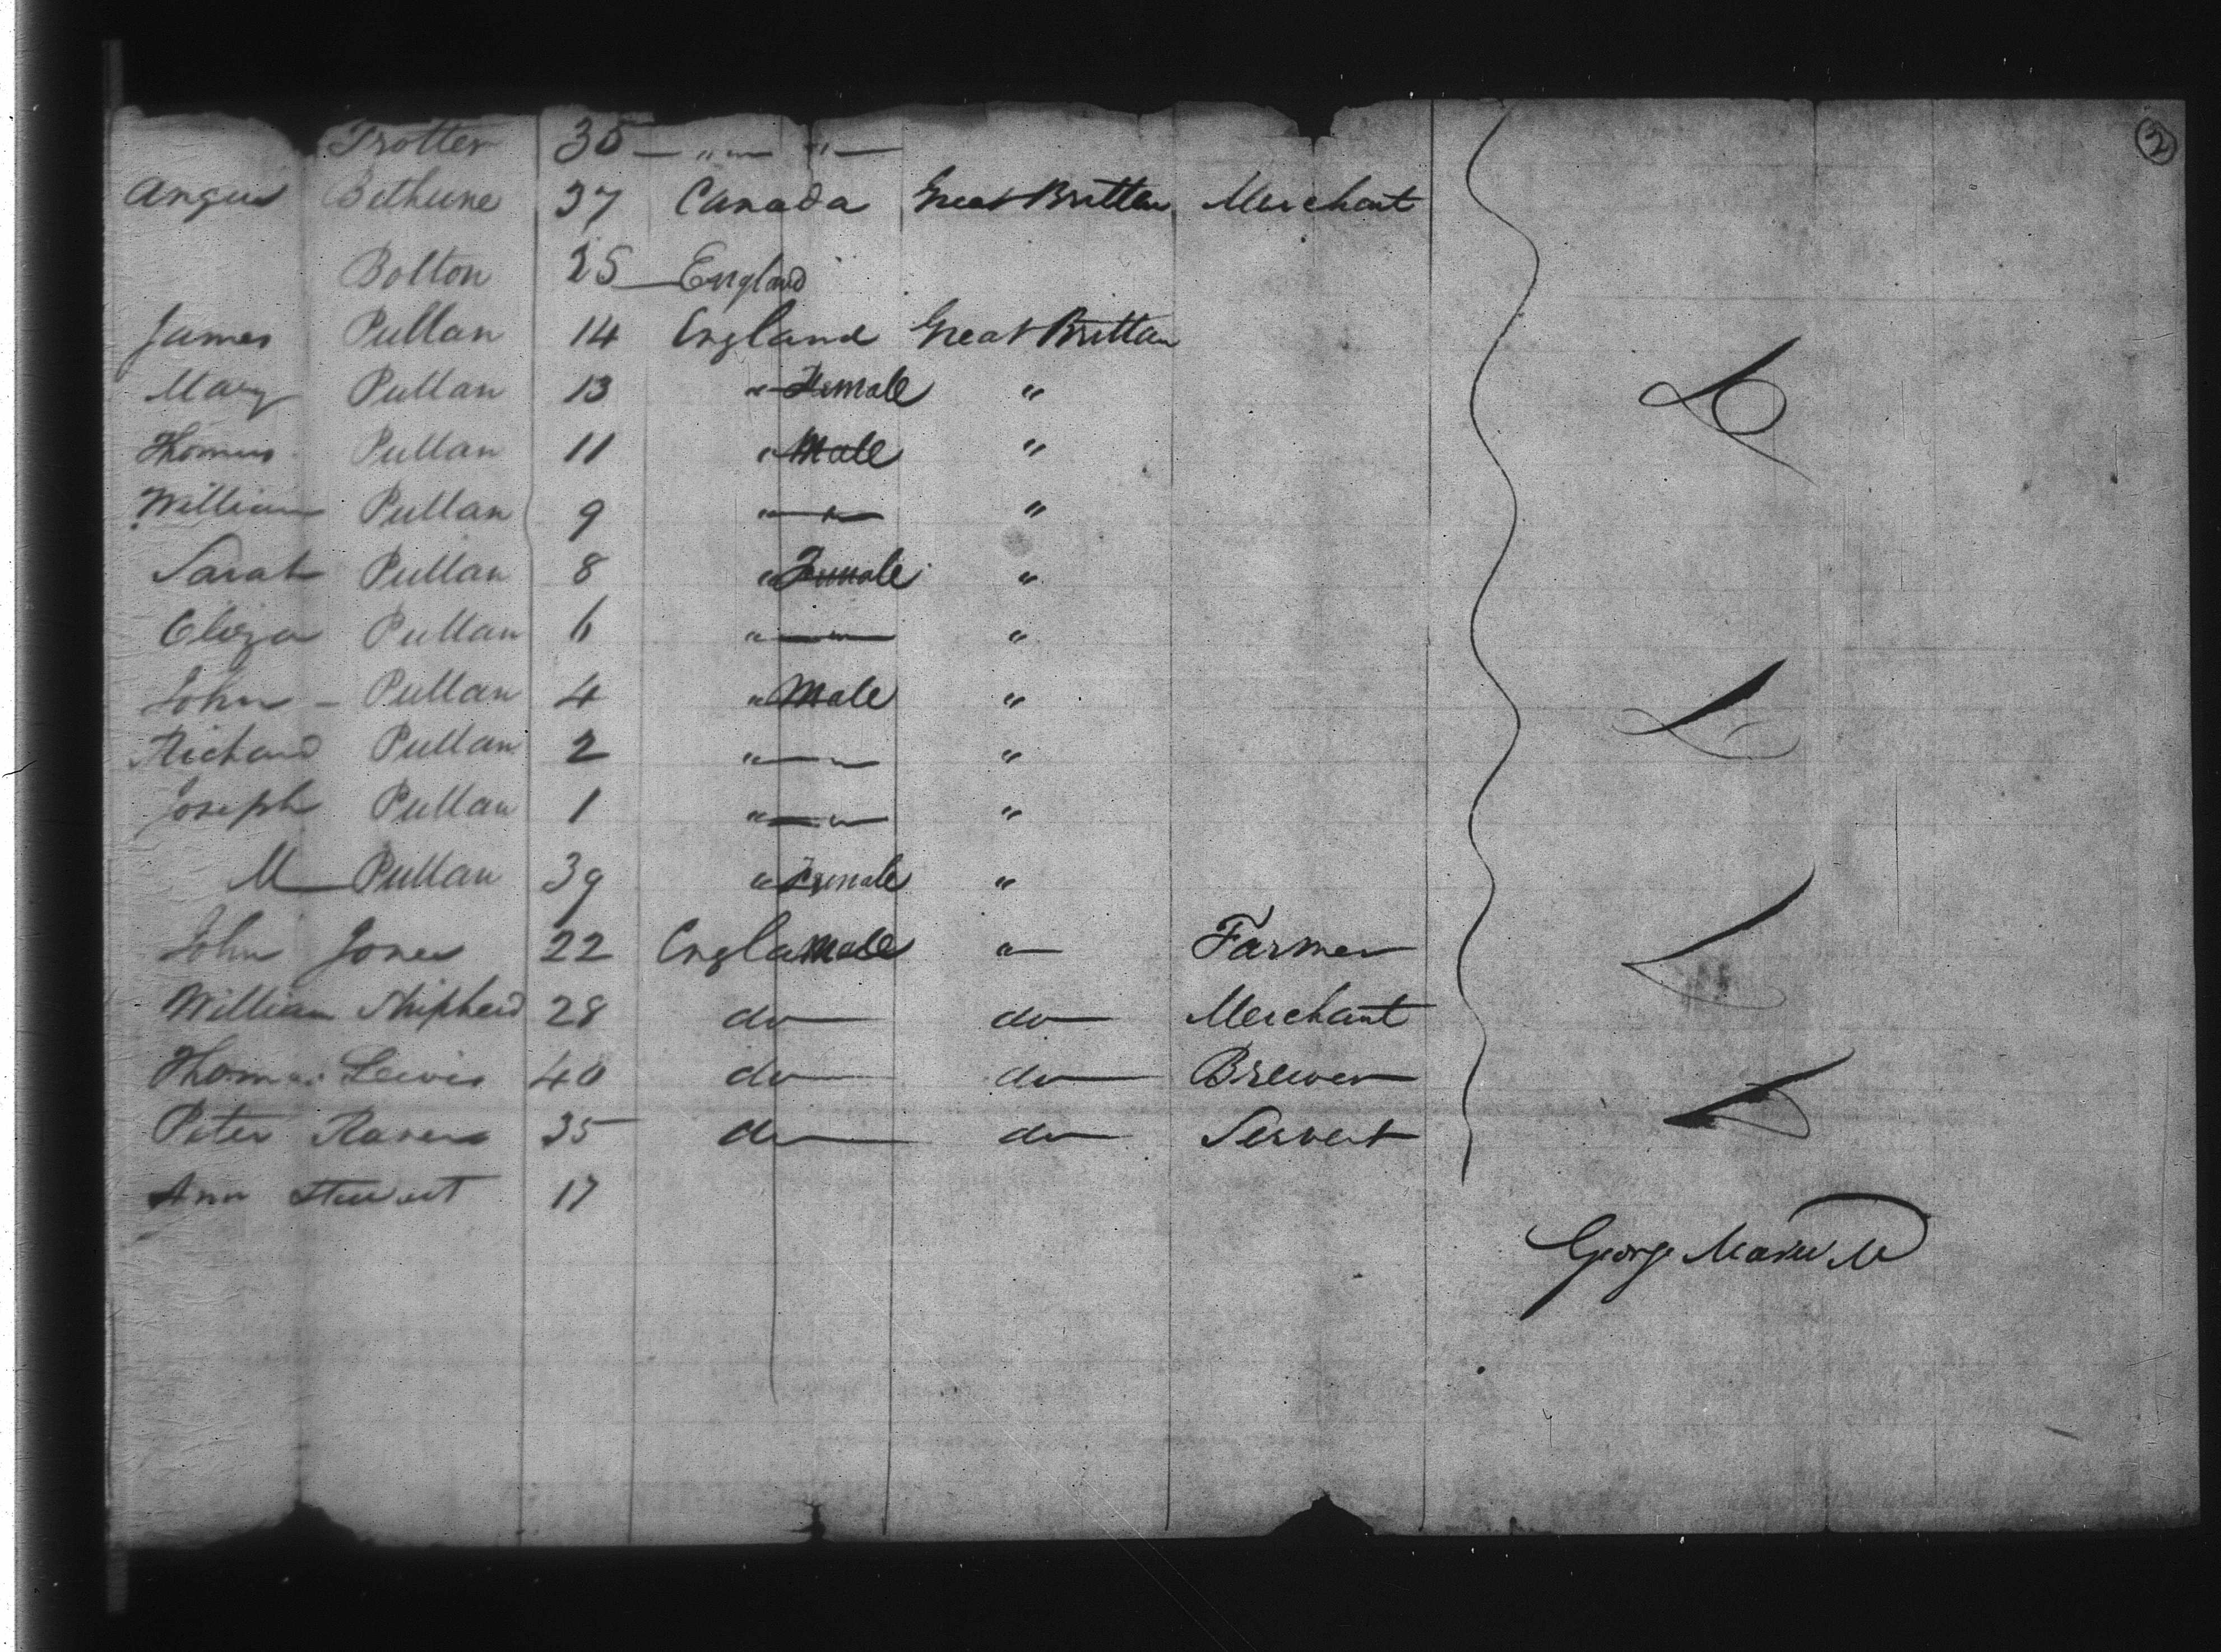 2
Trotter 35 — " — " —
Angus Bethune 37 Canada Great Brittan Merchant
Bolton 25 — England
James Pullan 14 England Great Brittan
Mary Pullan 13 " Female "
Thomas Pullan 11 " Male "
William Pullan 9 " — " — "
Sarah Pullan 8 " Female "
Eliza Pullan 6 " — " — "
John - Pullan 4 " Male "
Richard Pullan 2 " — " — "
Joseph Pullan 1 " — " — "
M — Pullan 39 " Female "
John Jones 22 Engla Male " — Farmer
William Shipherd 28 do — do — Merchant
Thomas Lewis 40 do — do — Brewer
Peter 35 do — do — Servent
Ann Stewart 17
George